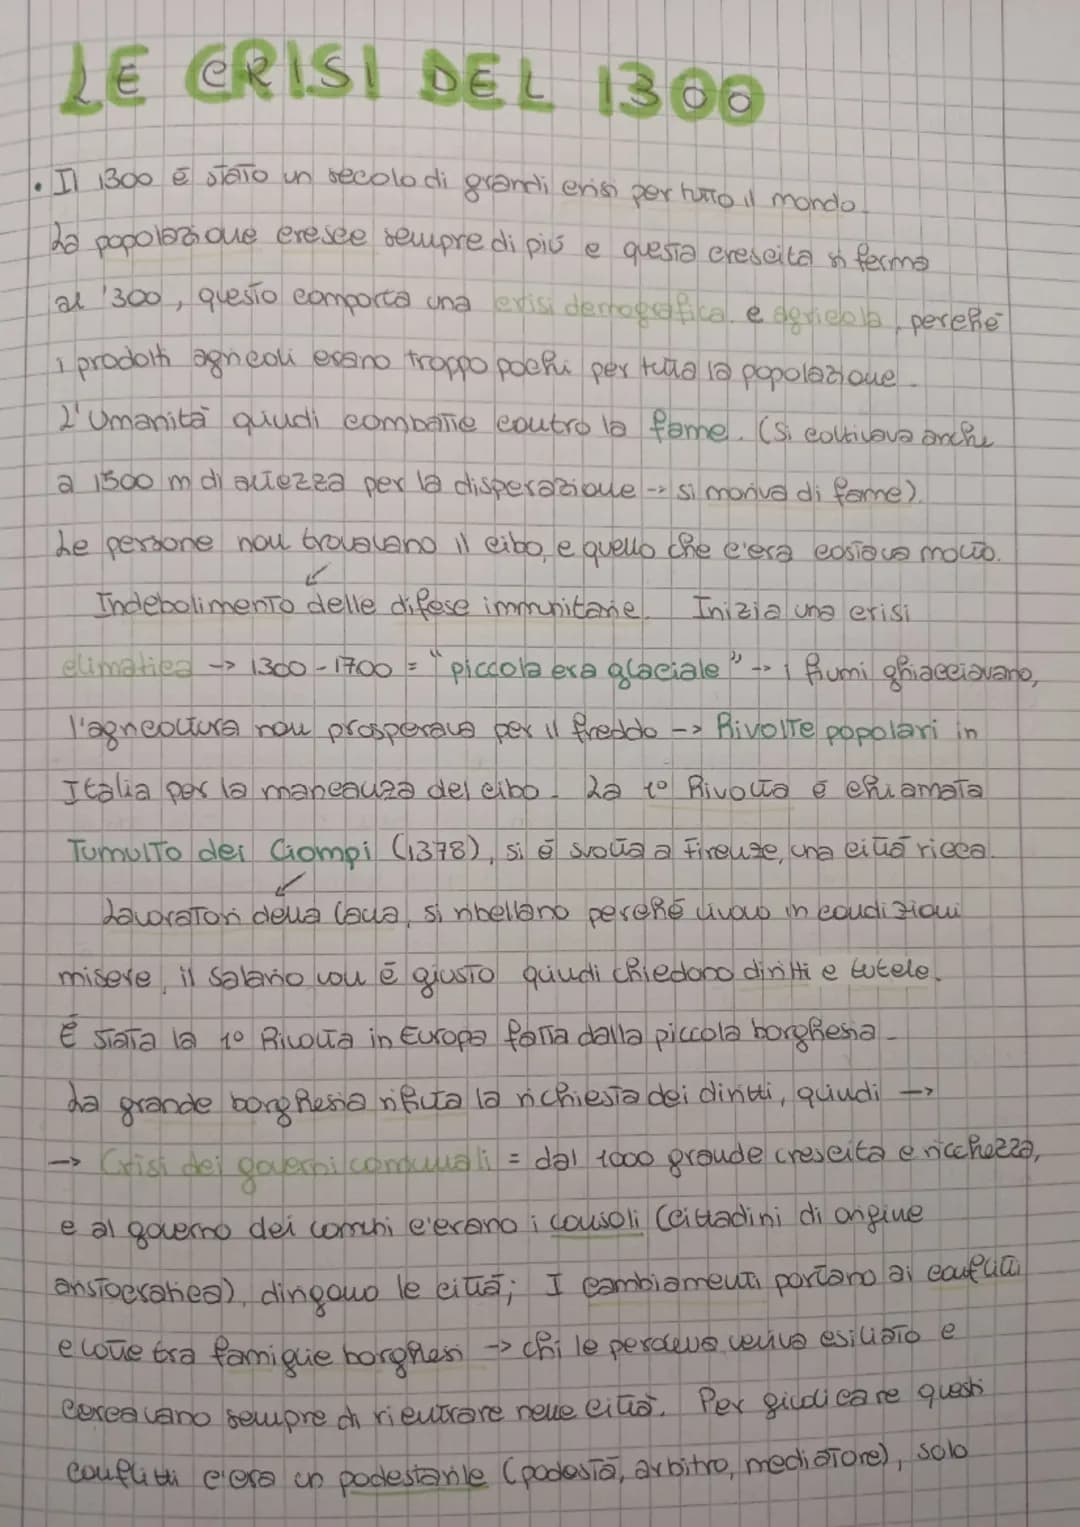 LE CRISI DEL 1300
• Il 1300 è stato un secolo di grandi crisi per tutto il mondo.
La popolazione cresce sempre di più e questa crescita si ferma
al '300, questo comporta una crisi demografica e agricola, perché
i prodotti agricoli erano troppo pochi per tutta la popolazione.
L'Umanità quindi combatte contro la fame. (Si coltivava anche
a 1500 m di altezza per la disperazione -> si moriva di fame).
Le persone non trovavano il cibo, e quello che c'era costava molto.
Indebolimento delle difese immunitarie. Inizia una crisi
climatica -> 1300-1700 = "piccola era glaciale" -> i fiumi ghiacciavano,
l'agricoltura non prosperava per il freddo -> Rivolte popolari in
Italia per la mancanza del cibo. La 1° Rivolta è chiamata
Tumulto dei Ciompi (1378), si è svolta a Firenze, una città ricca.
Lavoratori della lana, si ribellano perché vivono in condizioni
misere, il salario non è giusto quindi chiedono diritti e tutele.
È stata la 1° Rivolta in Europa fatta dalla piccola borghesia.
La grande borghesia rifiuta la richiesta dei diritti, quindi ->
-> Crisi dei governi comunali = dal 1000 grande crescita e ricchezza,
e al governo dei comuni c'erano i consoli (cittadini di origine
aristocratica), dirigono le città; I cambiamenti portano ai conflitti
e lotte tra famiglie borghesi -> chi le perdeva veniva esiliato e
cercavano sempre di rientrare nelle città. Per giudicare questi
conflitti c'era un podestarile (podestà, arbitro, mediatore), solo